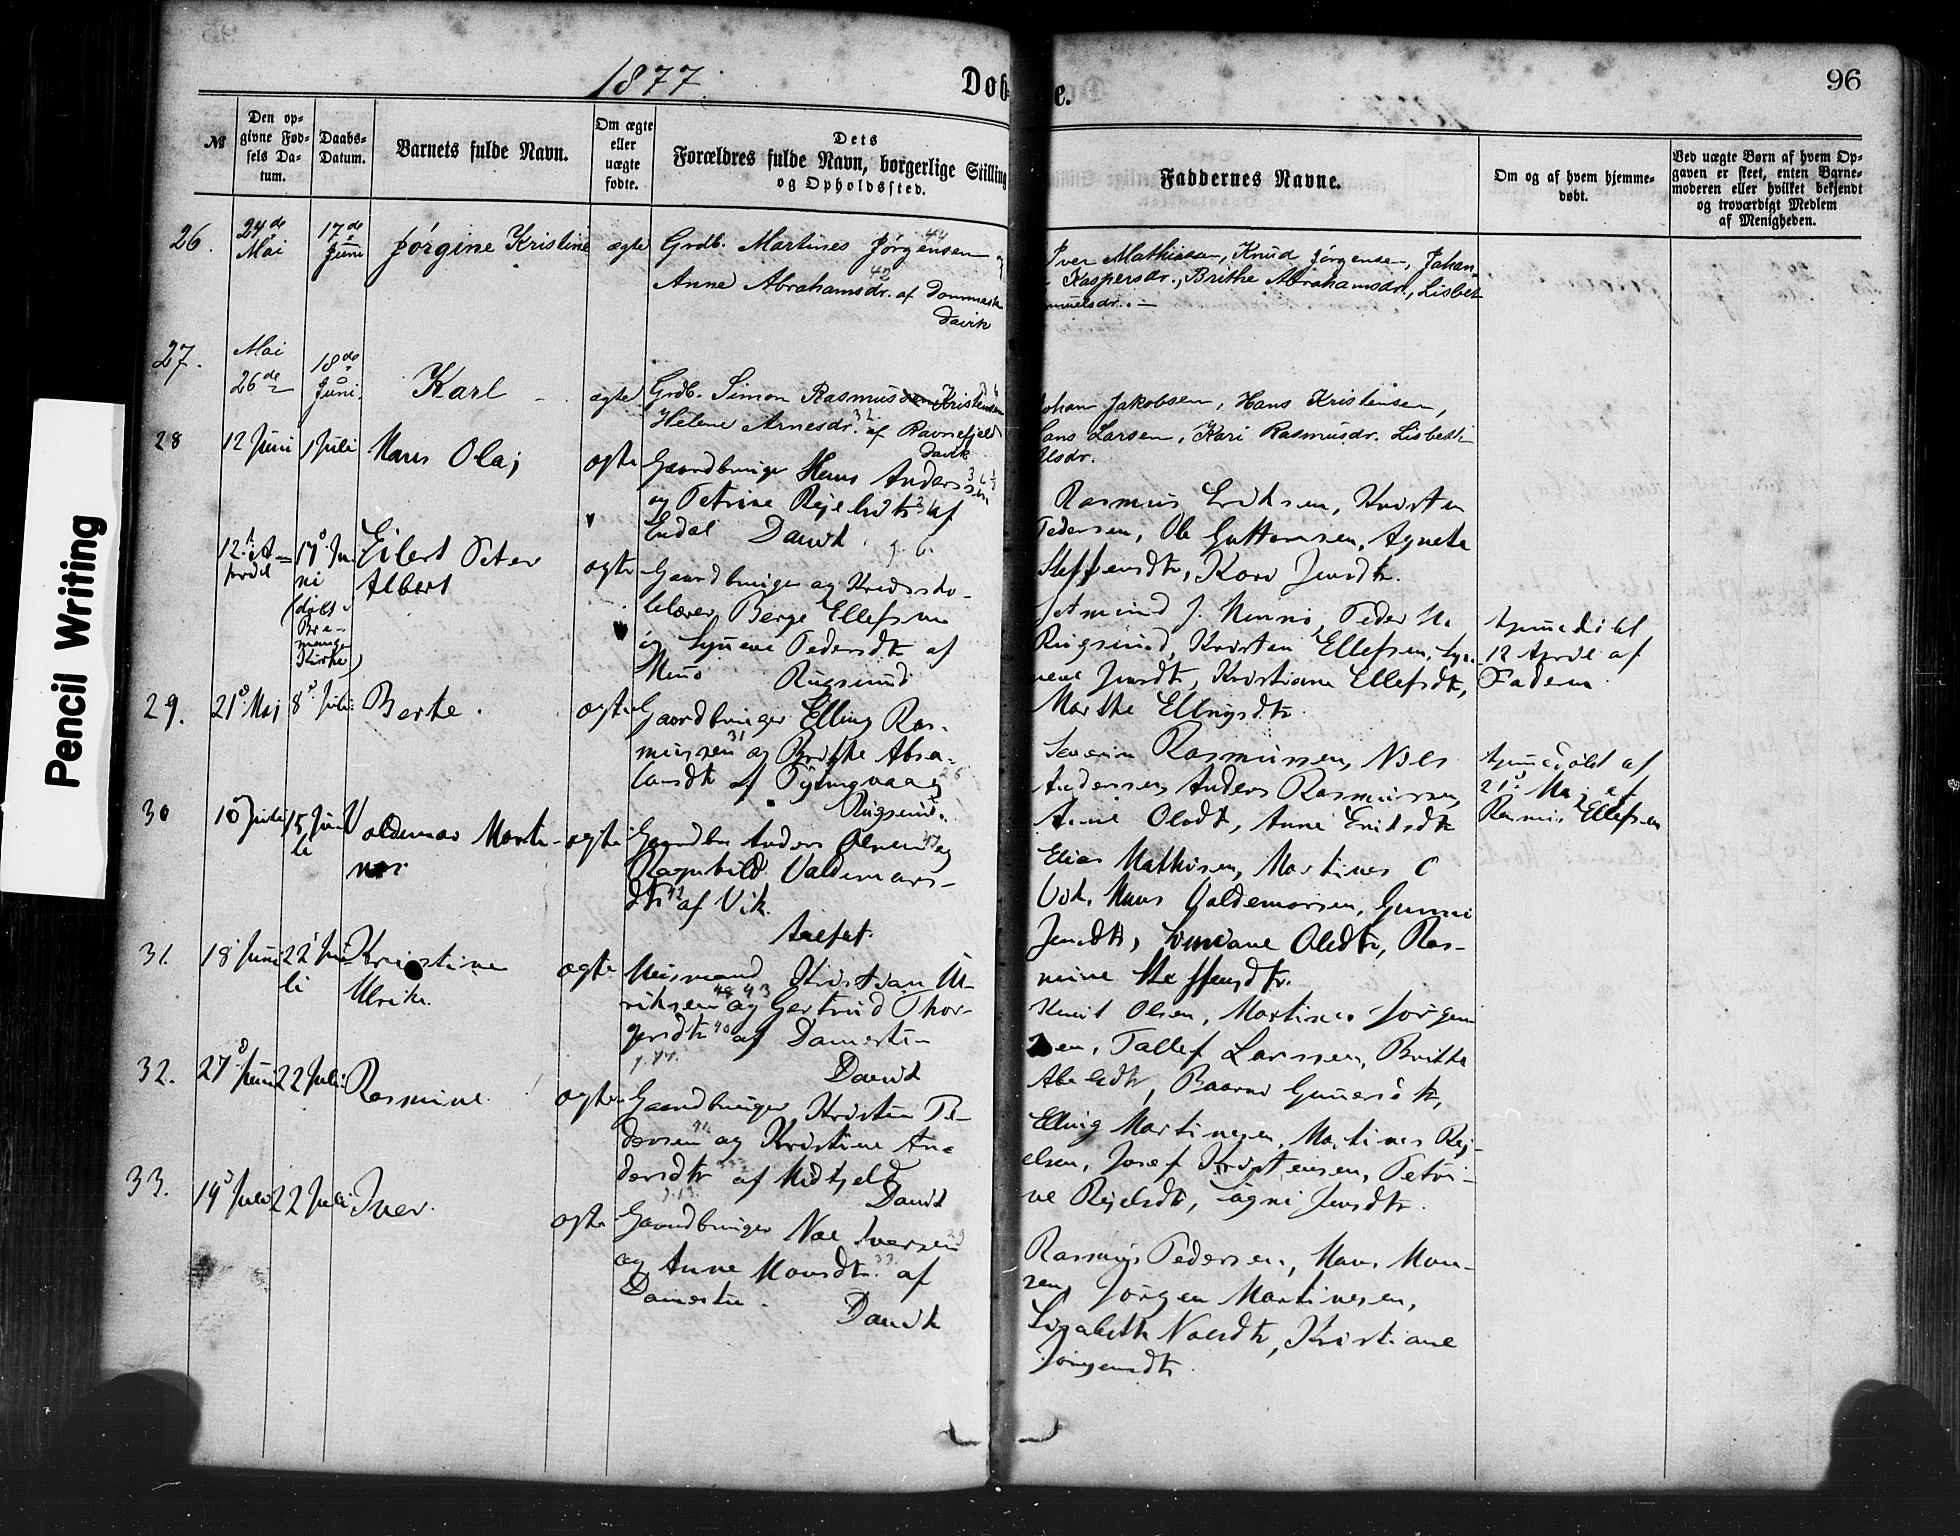 Pencil Writing
1877.
Døb
e.
96
№
Den op-
givne Fød-
sels Da-
tum.
Daabs-
Datum.
Barnets fulde Navn.
Om ægte
eller
uægte
fødte.
Dets
Forældres fulde Navn, borgerlige Stilling
og Opholdssted.
Faddernes Navne.
Om og af hvem hjemme-
døbt.
Ved uægte Børn af hvem Op-
gaven er skeet, enten Barne-
moderen eller hvilket bekjendt
og troværdigt Medlem
af Menigheden.
26.
24de
Mai
17de
Juni
Jørgine Kristine
ægte
Grdb. Martines Jørgensen
Anne Abrahamsdr. af
Davik
Iver Mathiasen, Knud Jørgensen, Johan-
Kaspersdr., Brithe Abrahamsdr., Lisbet
muelsdr. –
27.
Mai
26de
18de
Juni.
Karl
ægte
Grdb. Simon Rasmussen Kristensen
Helene Arnesdr. 32 af Ravnefjeld
Davik
ohan Jakobsen, Hans Kristensen,
ans Larsen, Kari Rasmusdr. Lisbeth
Elsdr.
28
12 Juni
1 Juli
Hans Olaj
ægte
Gaardbruger Hans Anderssen
og Petrine Rejelsdtr af
Endal Davik.
Rasmus Eriksen, Kristen
Pedersen, Ole Guttormsen, Agneta
Steffensdtr, Kari Jensdtr.
12.
17. Ju-
ni
(døbt i
Bre-
manger
Kirke)
Eilert Peter
Albert
ægte
Gaardbruger og Kredssko-
lelærer Berge Ellefsen
og Synneve Pedersdtr af
Rugsund
J. Peder
Rugsund, Kristen Ellefsen, Syn-
neve Jensdtr, Kristiane Ellefsdtr,
Marthe Ellingsdtr.
hjemmedøbt
12 April af
Faderen
29.
21. Maj
8. Juli
Berte.
ægte
Gaardbruger Elling Ras-
mussen 31 og Brithe Absa-
lonsdtr af
Rugsund.
Severin Rasmussen, Nils
Anderssen, Anders Rasmussen,
Anne Olsdtr, Anne Eriksdtr
hjemmedøbt af
21. Maj af
Rasmus Ellefsen
30
10 Juli
15 Ju-
li
Valdemar Marti-
nus
ægte
Gaardbr Anders Olsen og
Ragnhild Valdemars-
dtr 42 af Vik.
Aalfot.
Elias Mathisen, Martines
Vik, Hans Valdemarsen, Gunni
Jensdtr, Olsdtr, Ras-
mine Steffensdtr.
31.
18 Juni
22 Ju-
li
Kristine
Ulrike.
ægte
Huusmand Kristian Ul-
riksen 43 og Gertrud Thor-
gersdtr 40 af Damsten
Davik
Knut Olsen, Martines Jørgen
sen, Tallef Larssen, Brithe
Abelsdtr, Gunnersdtr,
32.
27 Juni
22 Juli
Rasmine
ægte
Gaardbruger Kristen Pe-
dersen og Kristine An-
dersdtr af Midtfjeld
Davik
Elling Martinesen, Martines Rej-
elsen, Josef Kristensen, Petri-
ne Rejelsdtr, Jensdtr.
33.
19 Juli
22 Juli
Iver.
ægte
Gaardbruger Noe Iversen 29
og Anne Monsdtr af
Damsten.
Davik
Rasmus Pedersen, Hans Mon-
sen, Jørgen Martinesen,
Lisabeth Noesdtr, Kristiane
Jørgensdtr.